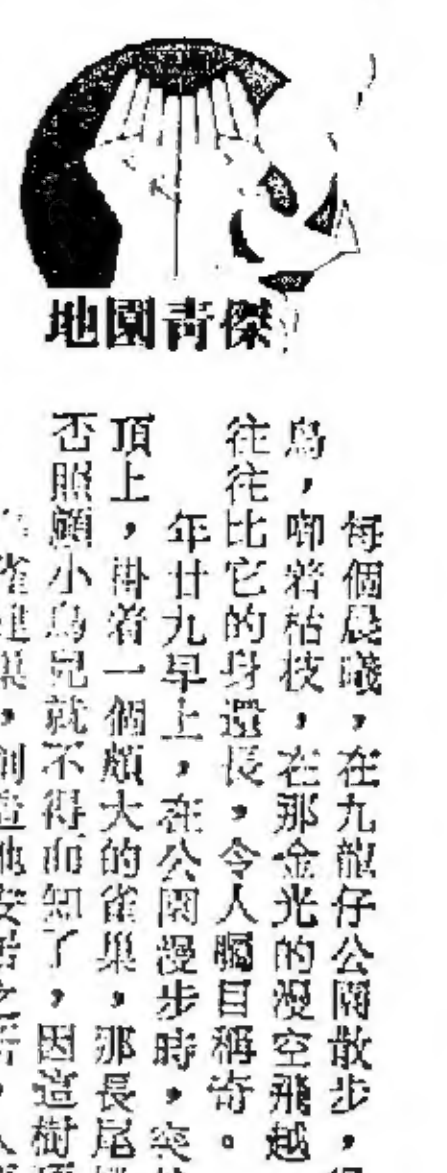 地園青傑
每個晨曦，在九龍仔公園散步，
鳥，啣着枯枝，在那金光的漫空飛越
往往比它的身還長，令人矚目稱奇。
年廿九早上，在公園漫步時，突
頂上，掛着一個頗大的雀巢，那長尾
否照顧小鳥兒就不得而知了，因這樹
雀建巢，創造他安居之所，人